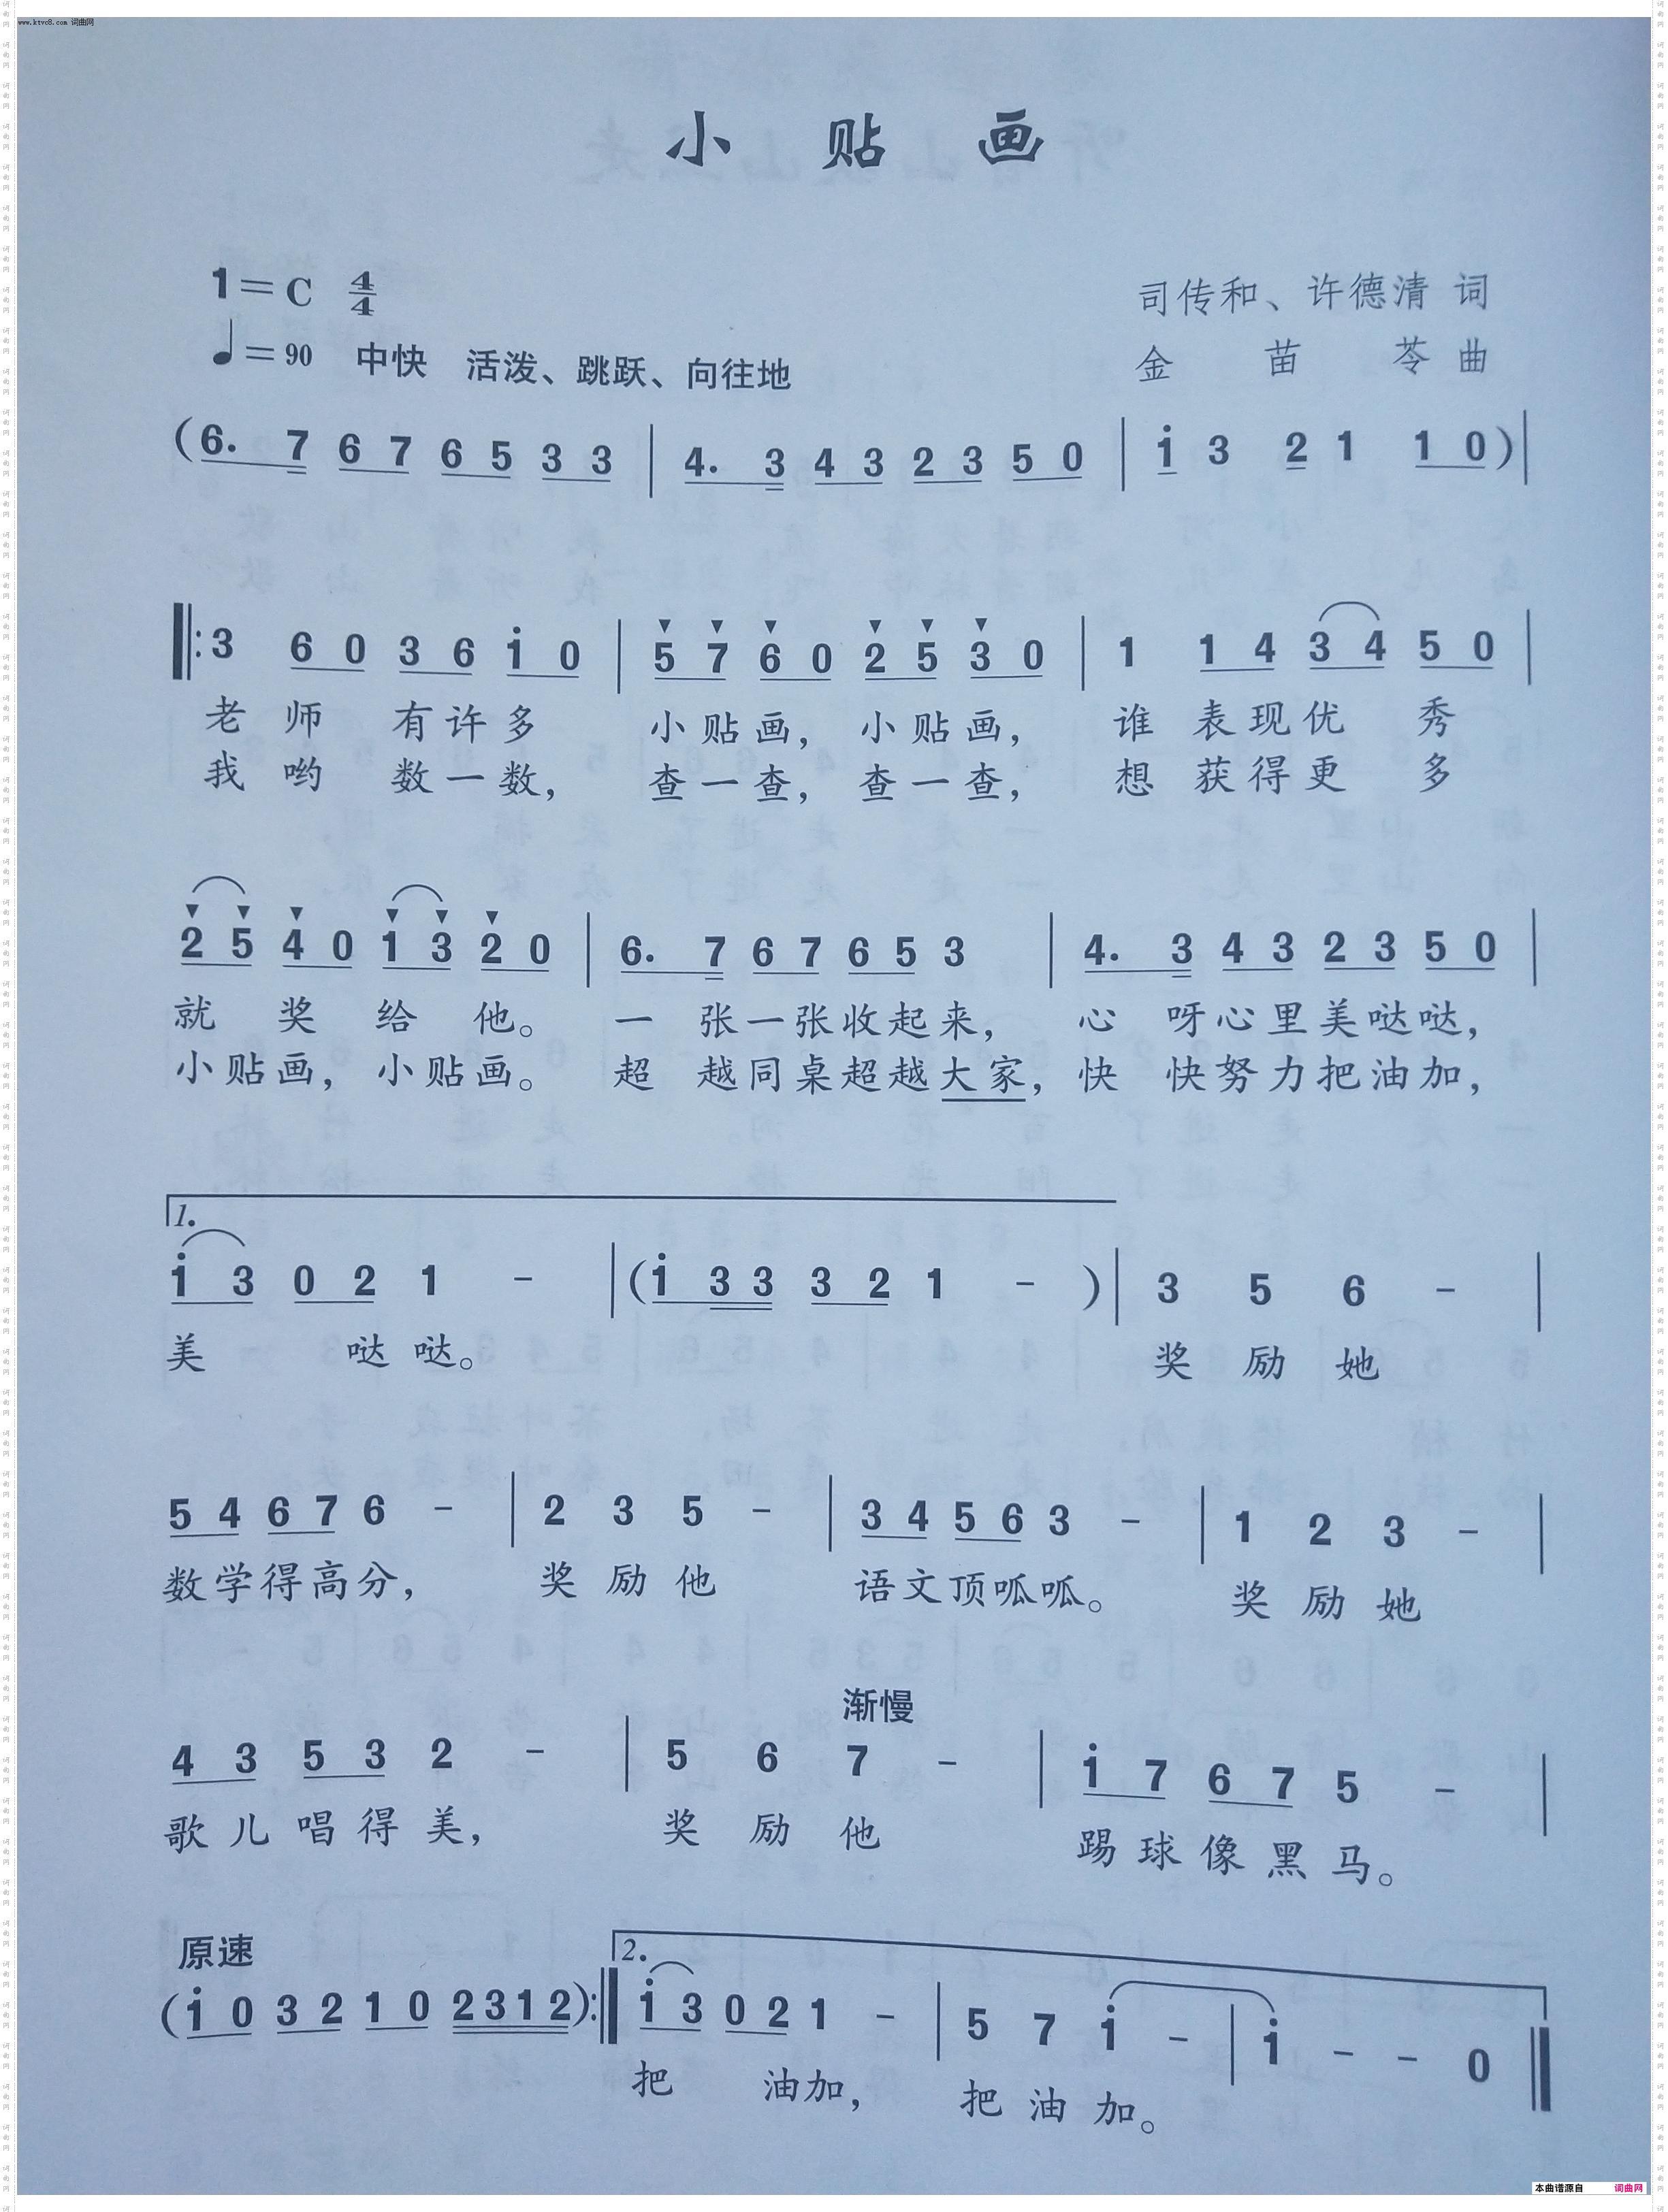 www.ktvc8.com 词曲网
小 贴 画
1=C 4/4
司传和、许德清 词
♩=90 中快 活泼、跳跃、向往地
金 苗 苓 曲
(6. 7 6 7 6 5 3 3 | 4. 3 4 3 2 3 5 0 | i 3 2 1 1 0)|
‖: 3 6 0 3 6 i 0 | 5 7 6 0 2 5 3 0 | 1 1 4 3 4 5 0 |
老 师 有 许 多 小 贴 画, 小 贴 画, 谁 表 现 优 秀
我 哟 数 一 数, 查 一 查, 查 一 查, 想 获 得 更 多
2 5 4 0 1 3 2 0 | 6. 7 6 7 6 5 3 | 4. 3 4 3 2 3 5 0 |
就 奖 给 他。 一 张 一 张 收 起 来, 心 呀 心 里 美 哒 哒,
小 贴 画, 小 贴 画。 超 越 同 桌 超 越 大 家, 快 快 努 力 把 油 加,
1.
i 3 0 2 1 - | (i 3 3 3 2 1 - )| 3 5 6 - |
美 哒 哒。 奖 励 她
5 4 6 7 6 - | 2 3 5 - | 3 4 5 6 3 - | 1 2 3 - |
数 学 得 高 分, 奖 励 他 语 文 顶 呱 呱。 奖 励 她
渐慢
4 3 5 3 2 - | 5 6 7 - | i 7 6 7 5 - |
歌 儿 唱 得 美, 奖 励 他 踢 球 像 黑 马。
原速
2.
(i 0 3 2 1 0 2 3 1 2):‖ i 3 0 2 1 - | 5 7 i - | i - - 0 ‖
把 油 加, 把 油 加。
本曲谱源自 词曲网